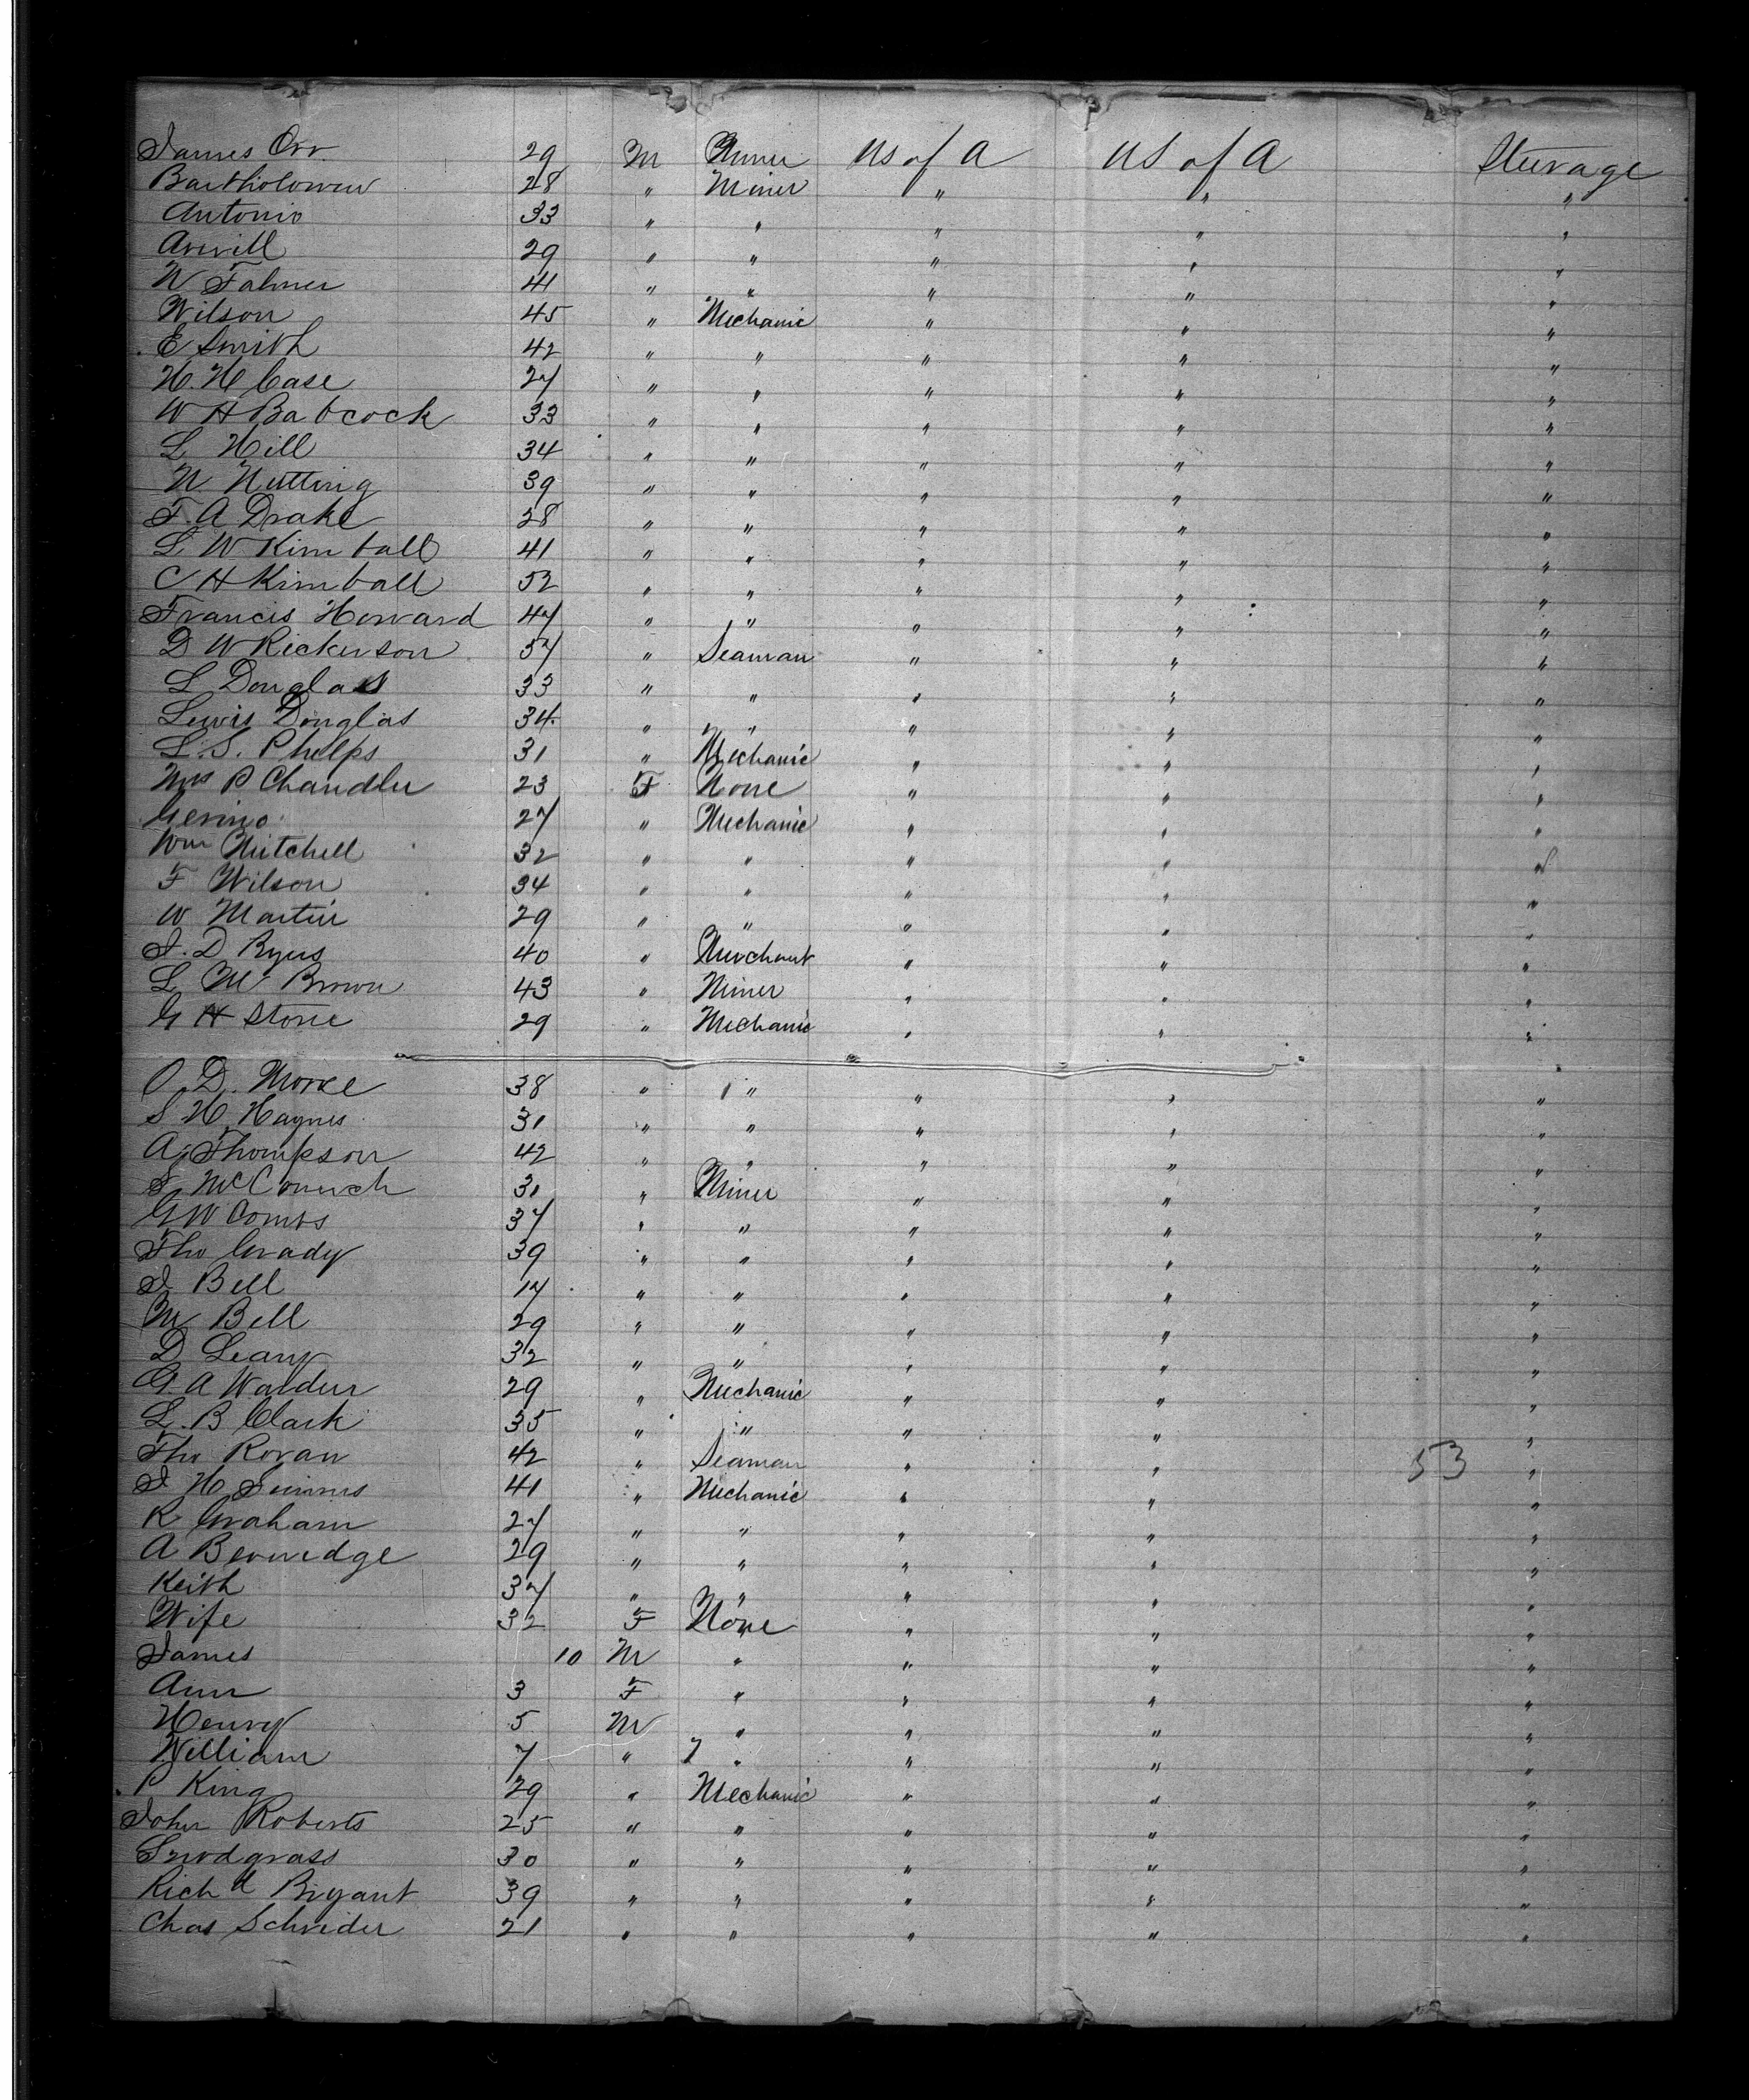 James Orr 29 M Miner US of A US of A Steerage
Bartholomew 28 " Miner " " "
Antonio 33 " " " " "
Averill 29 " " " " "
W 41 " " " " "
Wilson 45 " Mechanic " " "
E Smith 42 " " " " "
H. H Case 27 " " " " "
W H Babcock 33 " " " " "
L Hill 34 " " " " "
N Nutting 39 " " " " "
F. A Drake 28 " " " " "
L W Kimball 41 " " " " "
C H Kimball 52 " " " " "
Francis Howard 47 " " " " "
D W Rickerson 37 " Seaman " " "
L Douglass 33 " " " " "
Lewis Douglas 34 " " " " "
L. S. Phelps 31 " Mechanic " " "
Mrs P Chandler 23 F None " " "
27 " Mechanic " " "
Wm Mitchell 32 " " " " "
F Wilson 34 " " " " "
W Martin 29 " " " " "
J. D Ryers 40 " Merchant " " "
L M Brown 43 " Miner " " "
G H Stone 29 " Mechanic " " "
O. D. Morse 38 " " " " "
S H. Haynes 31 " " " " "
A Thompson 42 " " " " "
S 31 " Miner " " "
G W Combs 37 " " " " "
Tho Grady 39 " " " " "
J Bell 17 " " " " "
M Bell 29 " " " " "
D Leary 32 " " " " "
G. A Walden 29 " Mechanic " " "
L. B Clark 35 " " " " "
Tho Roran 42 " Seaman " " 53 "
J H 41 " Mechanic " " "
R Graham 27 " " " " "
A Berveredge 29 " " " " "
Keith 37 " " " " "
Wife 32 F None " " "
James 10 M " " " "
Ann 3 F " " " "
Henry 5 M " " " "
William 7 " " " " "
P King 29 " Mechanic " " "
John Roberts 25 " " " " "
Snodgrass 30 " " " " "
Richd Bryant 39 " " " " "
Chas Schrider 21 " " " "  "